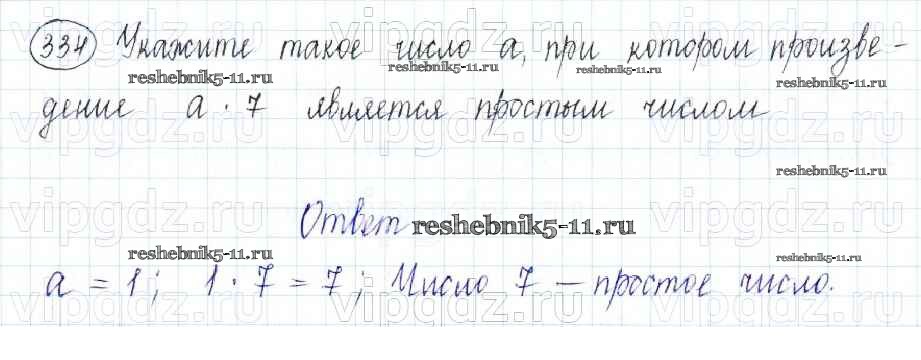 334 Укажите такое число a, при котором произве-
reshebnik5-11.ru reshebnik5-11.ru reshebnik5-11.ru
дение a · 7 является простым числом
vipgdz.ru vipgdz.ru vipgdz.ru
reshebnik5-11.ru
Ответ reshebnik5-11.ru
vipgdz.ru vipgdz.ru vipgdz.ru
reshebnik5-11.ru reshebnik5-11.ru
a = 1; 1 · 7 = 7; Число 7 – простое число.
vipgdz.ru vipgdz.ru vipgdz.ru